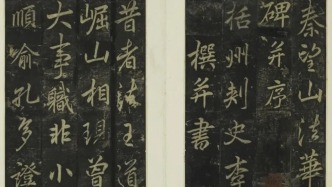 秦望山法華
碑并序
括州刺史李
撰并書
昔者法王道
崛山相現曾
大事職非小
順喻孔多證